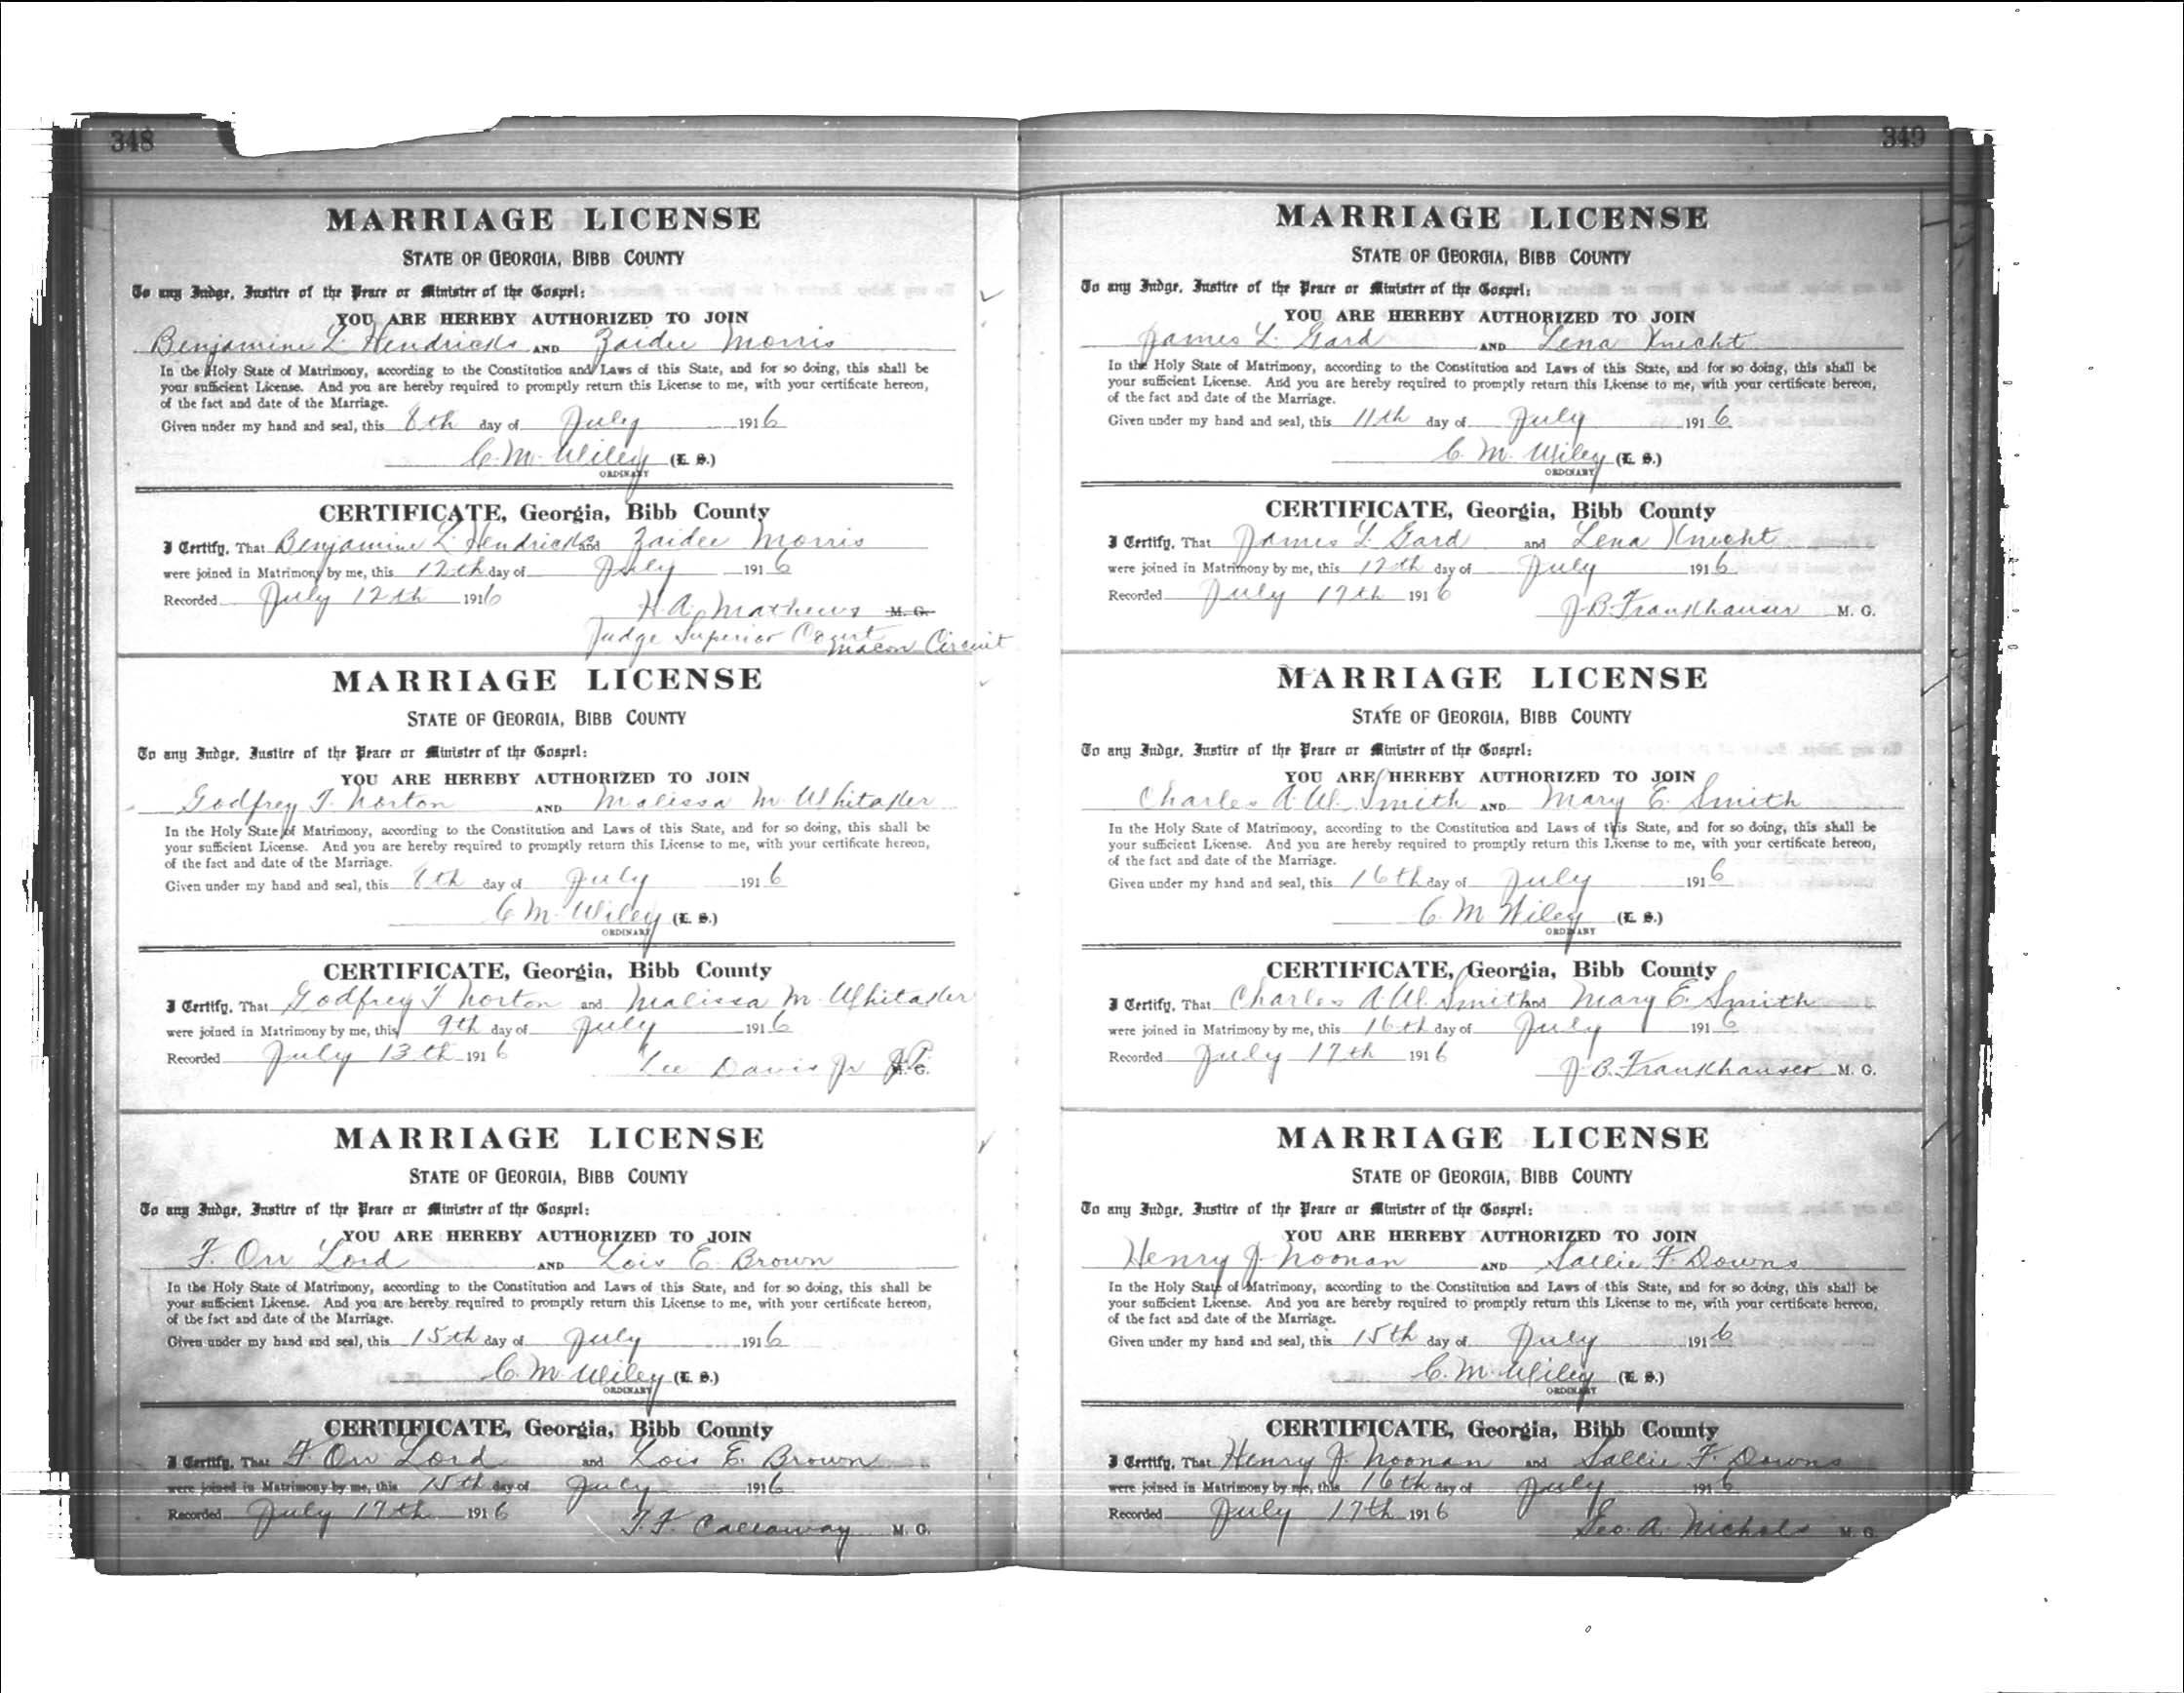 348
MARRIAGE LICENSE
STATE OF GEORGIA, BIBB COUNTY
To any Judge, Justice of the Peace or Minister of the Gospel:
YOU ARE HEREBY AUTHORIZED TO JOIN
Benjamine L. Hendricks AND Zaidee Morris
In the Holy State of Matrimony, according to the Constitution and Laws of this State, and for so doing, this shall be
your sufficient License. And you are hereby required to promptly return this License to me, with your certificate hereon,
of the fact and date of the Marriage.
Given under my hand and seal, this 8th day of July 1916
C. M. Wiley (L. S.)
ORDINARY
CERTIFICATE, Georgia, Bibb County
I Certify, That Benjamine L. Hendricks and Zaidee Morris
were joined in Matrimony by me, this 12th day of July 1916
Recorded July 12th 1916 H. A. Mathews M. G.
Judge Superior Court
Macon Circuit
MARRIAGE LICENSE
STATE OF GEORGIA, BIBB COUNTY
To any Judge, Justice of the Peace or Minister of the Gospel:
YOU ARE HEREBY AUTHORIZED TO JOIN
Godfrey T. Norton AND Malissa M. Whitaker
In the Holy State of Matrimony, according to the Constitution and Laws of this State, and for so doing, this shall be
your sufficient License. And you are hereby required to promptly return this License to me, with your certificate hereon,
of the fact and date of the Marriage.
Given under my hand and seal, this 8th day of July 1916
C. M. Wiley (L. S.)
ORDINARY
CERTIFICATE, Georgia, Bibb County
I Certify, That Godfrey T Norton and Malissa M. Whitaker
were joined in Matrimony by me, this 9th day of July 1916
Recorded July 13th 1916 Lee Davis Jr J.P.
M. G.
MARRIAGE LICENSE
STATE OF GEORGIA, BIBB COUNTY
To any Judge, Justice of the Peace or Minister of the Gospel:
YOU ARE HEREBY AUTHORIZED TO JOIN
F. Orr Lord AND Lois E. Brown
In the Holy State of Matrimony, according to the Constitution and Laws of this State, and for so doing, this shall be
your sufficient License. And you are hereby required to promptly return this License to me, with your certificate hereon,
of the fact and date of the Marriage.
Given under my hand and seal, this 15th day of July 1916
C. M. Wiley (L. S.)
ORDINARY
CERTIFICATE, Georgia, Bibb County
I Certify, That F. Orr Lord and Lois E. Brown
were joined in Matrimony by me, this 15th day of July 1916
Recorded July 17th 1916 T. F. Callaway M. G.
349
MARRIAGE LICENSE
STATE OF GEORGIA, BIBB COUNTY
To any Judge, Justice of the Peace or Minister of the Gospel:
YOU ARE HEREBY AUTHORIZED TO JOIN
James L. Gard AND Lena Knecht
In the Holy State of Matrimony, according to the Constitution and Laws of this State, and for so doing, this shall be
your sufficient License. And you are hereby required to promptly return this License to me, with your certificate hereon,
of the fact and date of the Marriage.
Given under my hand and seal, this 11th day of July 1916
C. M. Wiley (L. S.)
ORDINARY
CERTIFICATE, Georgia, Bibb County
I Certify, That James L. Gard and Lena Knecht
were joined in Matrimony by me, this 12th day of July 1916
Recorded July 17th 1916 J. B. Frankhauser M. G.
MARRIAGE LICENSE
STATE OF GEORGIA, BIBB COUNTY
To any Judge, Justice of the Peace or Minister of the Gospel:
YOU ARE HEREBY AUTHORIZED TO JOIN
Charles A. W. Smith AND Mary E. Smith
In the Holy State of Matrimony, according to the Constitution and Laws of this State, and for so doing, this shall be
your sufficient License. And you are hereby required to promptly return this License to me, with your certificate hereon,
of the fact and date of the Marriage.
Given under my hand and seal, this 16th day of July 1916
C. M Wiley (L. S.)
ORDINARY
CERTIFICATE, Georgia, Bibb County
I Certify, That Charles A. W. Smith and Mary E. Smith
were joined in Matrimony by me, this 16th day of July 1916
Recorded July 17th 1916 J. B. Frankhauser M. G.
MARRIAGE LICENSE
STATE OF GEORGIA, BIBB COUNTY
To any Judge, Justice of the Peace or Minister of the Gospel:
YOU ARE HEREBY AUTHORIZED TO JOIN
Henry J. Noonan AND Sallie F. Downs
In the Holy State of Matrimony, according to the Constitution and Laws of this State, and for so doing, this shall be
your sufficient License. And you are hereby required to promptly return this License to me, with your certificate hereon,
of the fact and date of the Marriage.
Given under my hand and seal, this 15th day of July 1916
C. M. Wiley (L. S.)
ORDINARY
CERTIFICATE, Georgia, Bibb County
I Certify, That Henry J. Noonan and Sallie F. Downs
were joined in Matrimony by me, this 16th day of July 1916
Recorded July 17th 1916 Geo. A. Nichols M. G.